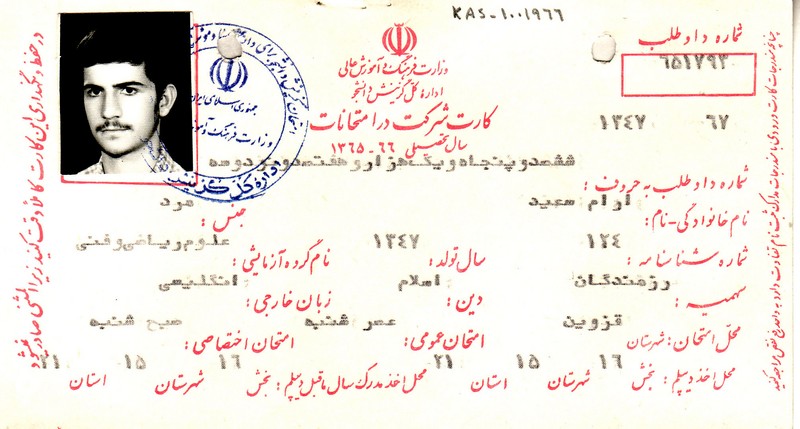 KAS-1001966
وزارت فرهنگ و آموزش عالی
اداره کل گزینش دانشجو
کارت شرکت در امتحانات
سال تحصیلی ۶۶-۱۳۶۵
شماره داوطلب
۶۵۱۷۹۲
۶۷ ۱۳۴۷
شماره داوطلب به حروف: ششصدو پنجاه و یک هزار و هفتصدو نودودو
نام خانوادگی - نام: ارام سعید جنس: مرد
شماره شناسنامه: ۱۲۴ سال تولد: ۱۳۴۷ نام گروه آزمایشی: علوم ریاضی و فنی
سهمیه: رزمندگان دین: اسلام زبان خارجی: انگلیسی
محل امتحان: شهرستان قزوین امتحان عمومی: عصر شنبه امتحان اختصاصی: صبح شنبه
محل اخذ دیپلم: بخش ۱۶ شهرستان ۱۵ استان ۲۱ محل اخذ مدرک سال ماقبل دیپلم: بخش ۱۶ شهرستان ۱۵ استان ۲۱
در حفظ و نگهداری این کارت کاملا دقت کنید زیرا المثنی صادر نمیشود
جمهوری اسلامی ایران
وزارت فرهنگ و آموزش
اداره کل گزینش